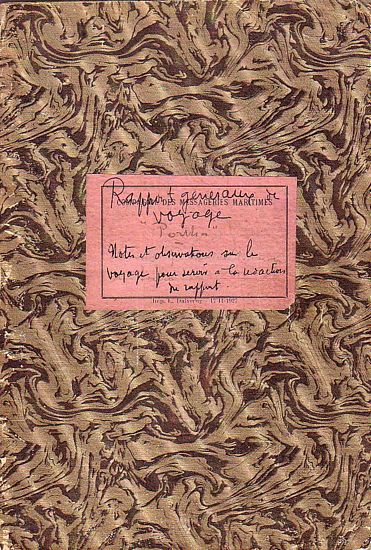 Rapport général de
COMPAGNIE DES MESSAGERIES MARITIMES
voyage
"Porthos"
Notes et observations sur le
voyage pour servir à la rédaction
du rapport.